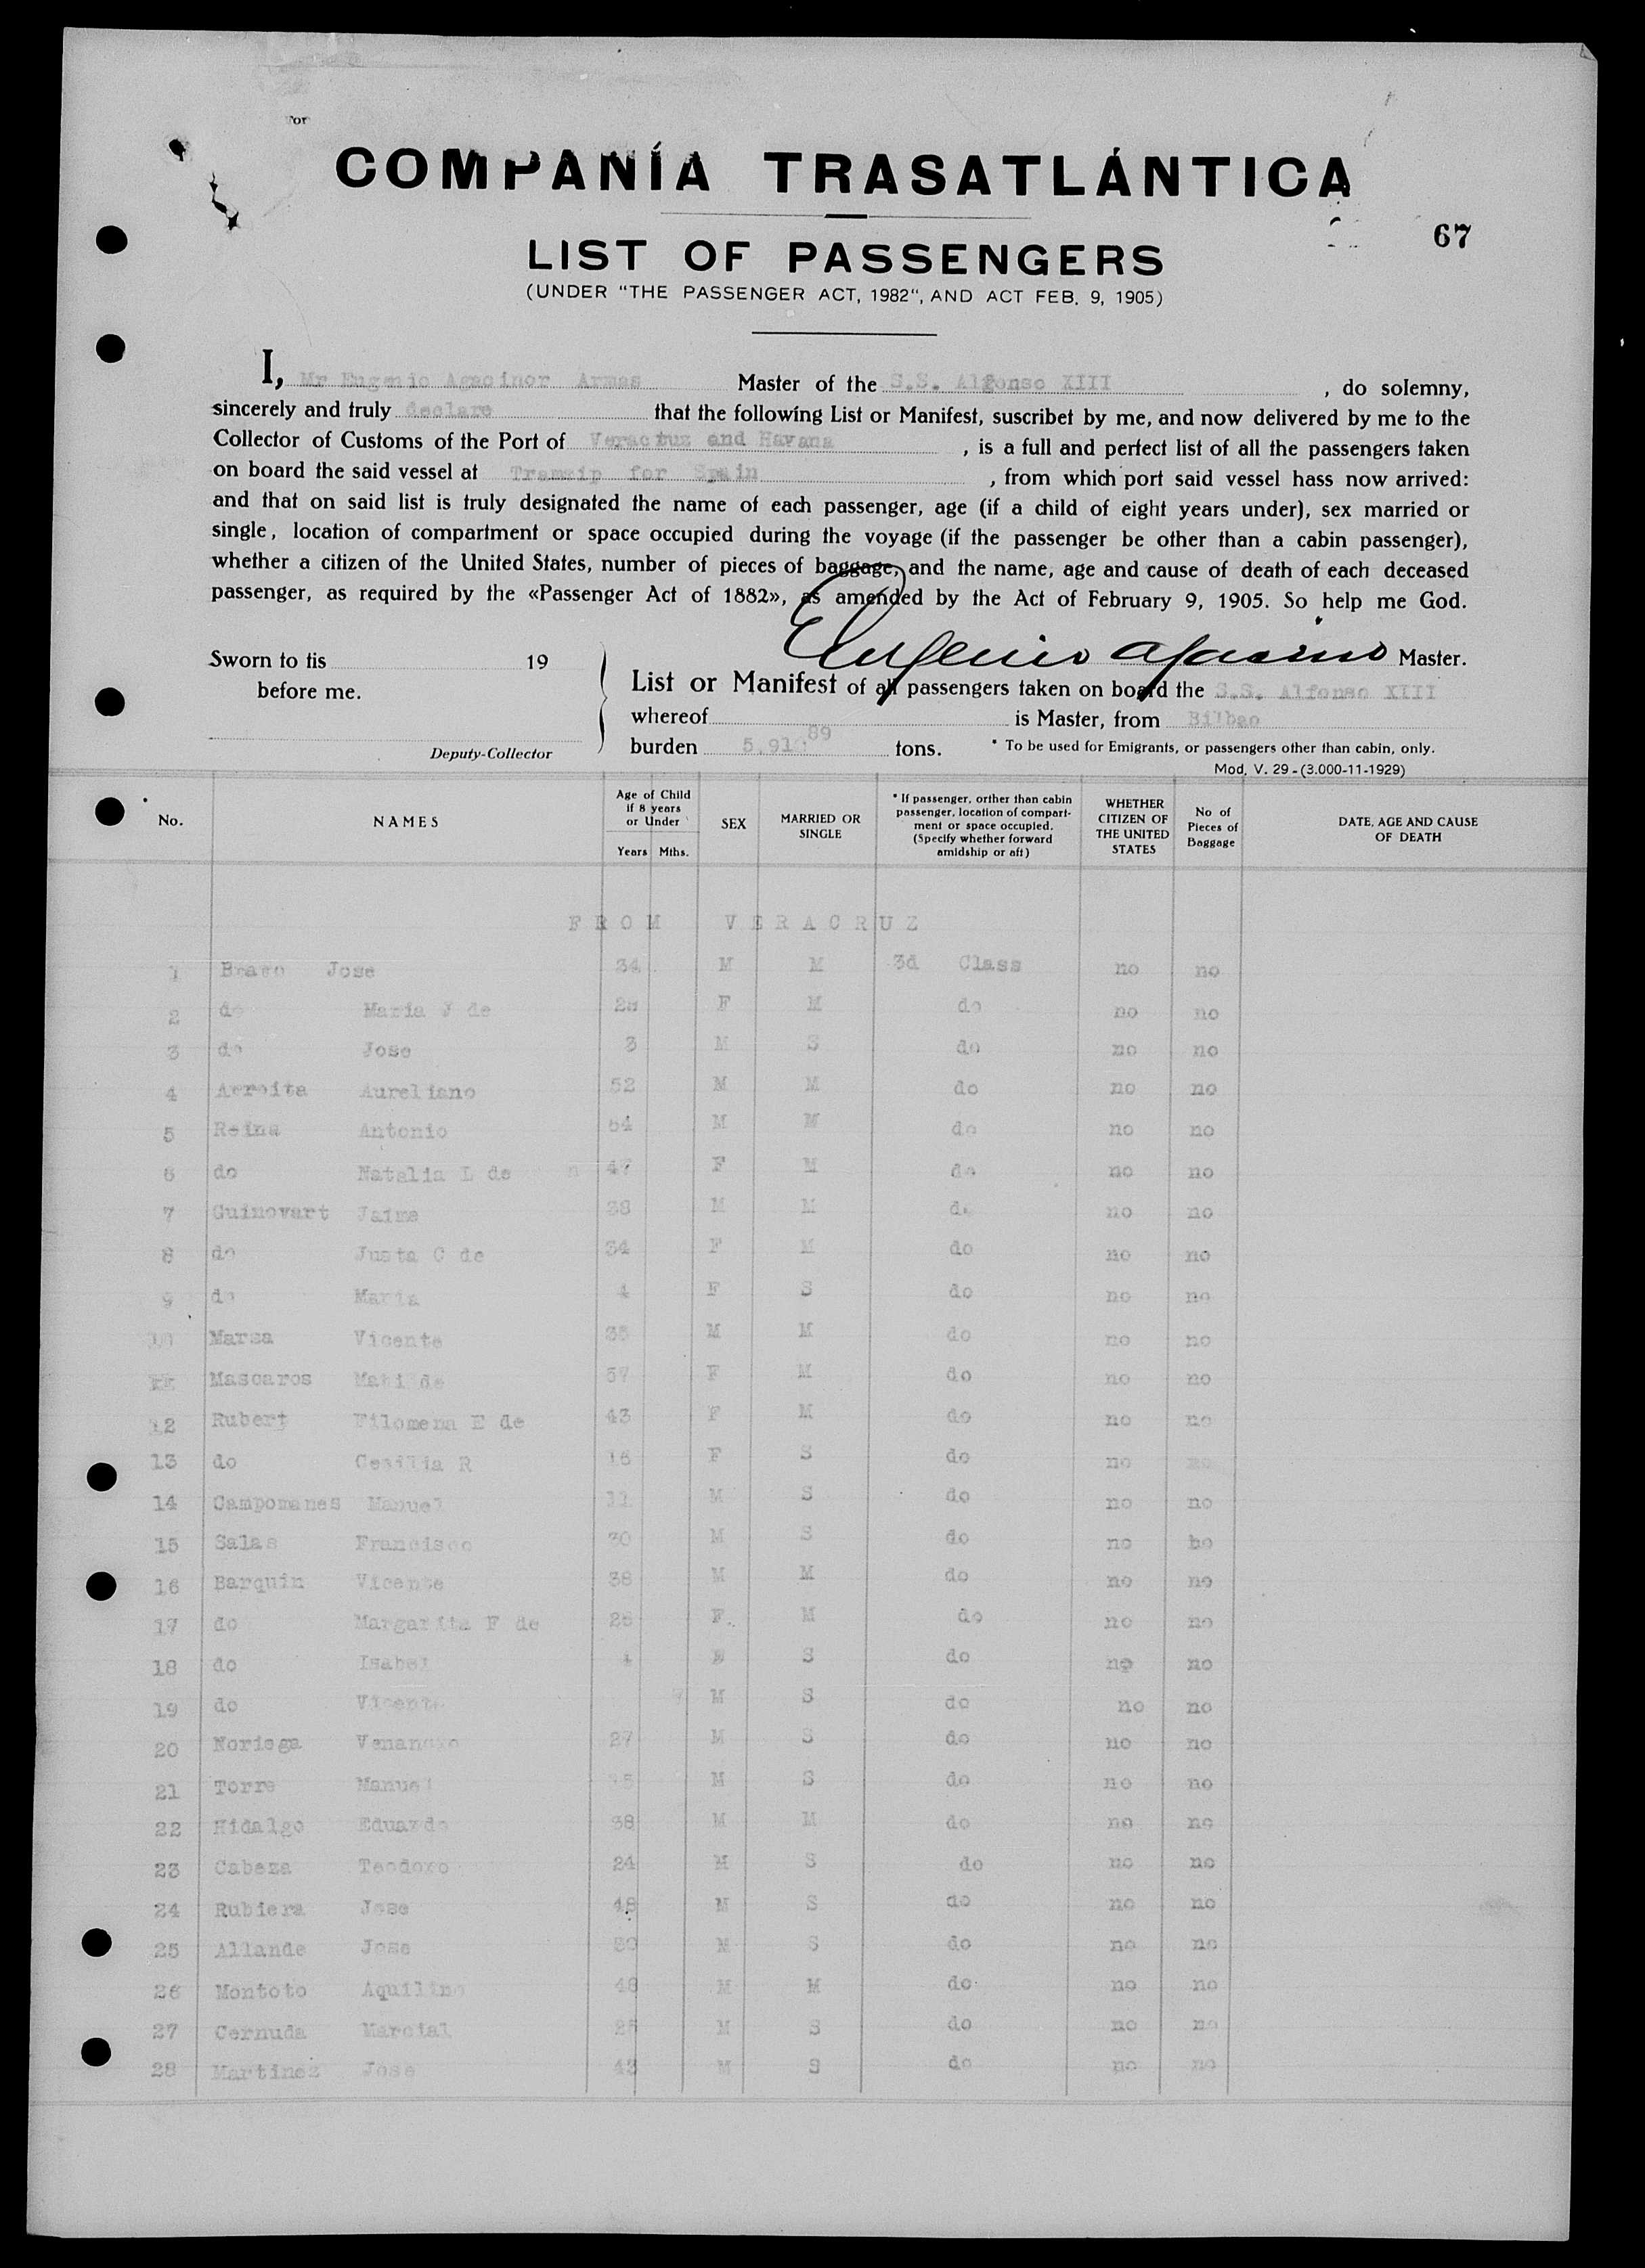 COMPANÍA TRASATLÁNTICA
67
LIST OF PASSENGERS
(UNDER "THE PASSENGER ACT, 1982", AND ACT FEB. 9, 1905)
I, Mr Eugenio Agacinor Armas Master of the S.S. Alfonso XIII , do solemny,
sincerely and truly declare that the following List or Manifest, suscribet by me, and now delivered by me to the
Collector of Customs of the Port of Veracruz and Havana , is a full and perfect list of all the passengers taken
on board the said vessel at for Spain , from which port said vessel hass now arrived:
and that on said list is truly designated the name of each passenger, age (if a child of eight years under), sex married or
single, location of compartment or space occupied during the voyage (if the passenger be other than a cabin passenger),
whether a citizen of the United States, number of pieces of baggage, and the name, age and cause of death of each deceased
passenger, as required by the «Passenger Act of 1882», as amended by the Act of February 9, 1905. So help me God.
Sworn to tis 19
before me.
Deputy-Collector
Eugenio Agacino Master.
List or Manifest of all passengers taken on board the S.S. Alfonso XIII
whereof is Master, from Bilbao
burden tons. * To be used for Emigrants, or passengers other than cabin, only.
Mod, V. 29 - (3.000-11-1929)
No. NAMES Age of Child if 8 years or Under Years Mths. SEX MARRIED OR SINGLE * If passenger, orther than cabin passenger, location of compartment or space occupied. (Specify whether forward amidship or aft) WHETHER CITIZEN OF THE UNITED STATES No of Pieces of Baggage DATE, AGE AND CAUSE OF DEATH
FROM VERACRUZ
1 Bravo Jose 34 M M 3d Class no no
2 do Maria J de F M do no no
3 do Jose 3 M S do no no
4 Arroita Aureliano 52 M M do no no
5 Reina Antonio 54 M M do no no
6 do Natalia L de 47 F M do no no
7 Guinovart Jaime 38 M M do no no
8 do Justa C de 34 F M do no no
9 do Maria 4 F S do no no
10 Marsa Vicente 35 M M do no no
11 Mascaros Matilde 37 F M do no no
12 Rubert Filomena E de 43 F M do no no
13 do Cesilia R 16 F S do no no
14 Campomanes Manuel 11 M S do no no
15 Salas Francisco 30 M S do no ho
16 Barquin Vicente 38 M M do no no
17 do Margarita F de 26 F. M do no no
18 do Isabel 4 F S do no no
19 do Vicente M S do no no
20 Noriega Venancio 27 M S do no no
21 Torre Manuel M S do no no
22 Hidalgo Eduardo 38 M M do no no
23 Cabeza Teodoro 24 M S do no no
24 Rubiera Jose 48 M S do no no
25 Allande Jose M S do no no
26 Montoto Aquilino 48 M M do no no
27 Cernuda Marcial 25 M S do no no
28 Martinez Jose 43 M S do no no